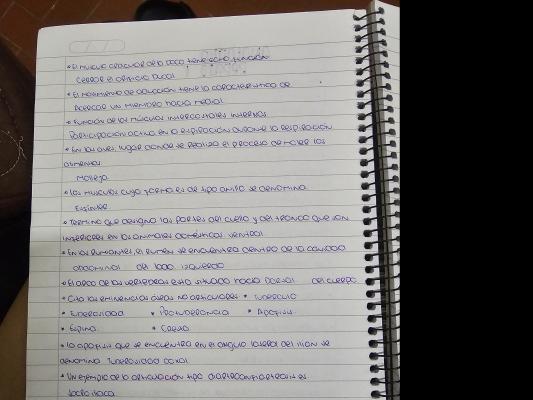 • El músculo orbicular de la boca tiene como función
Cerrar el orificio bucal
• El movimiento de aducción tiene la característica de
Acercar un miembro hacia medial
• Función de los músculos intercostales internos
Participación activa en la espiración durante la respiración
• En las aves, lugar donde se realiza el proceso de moler los
alimentos
Molleja
• Los músculos cuya forma es de tipo anillo se denomina
Esfinter
• Termino que designa las partes del cuello y del tronco que son
inferiores en los animales domésticos ventral
• En los rumiantes, el rumen se encuentra dentro de la cavidad
abdominal del lado izquierdo
• El arco de las vertebras esta situado hacia Dorsal del cuerpo
• Cita las eminencias óseas no articulares • Tuberculo
• Tuberosidad • Protuberancia • Apofisis
• Espina • Cresta
• La apofisis que se encuentra en el angulo lateral del ilion se
denomina Tuberosidad coxal
• Un ejemplo de la articulación tipo es
Sacroiliaca